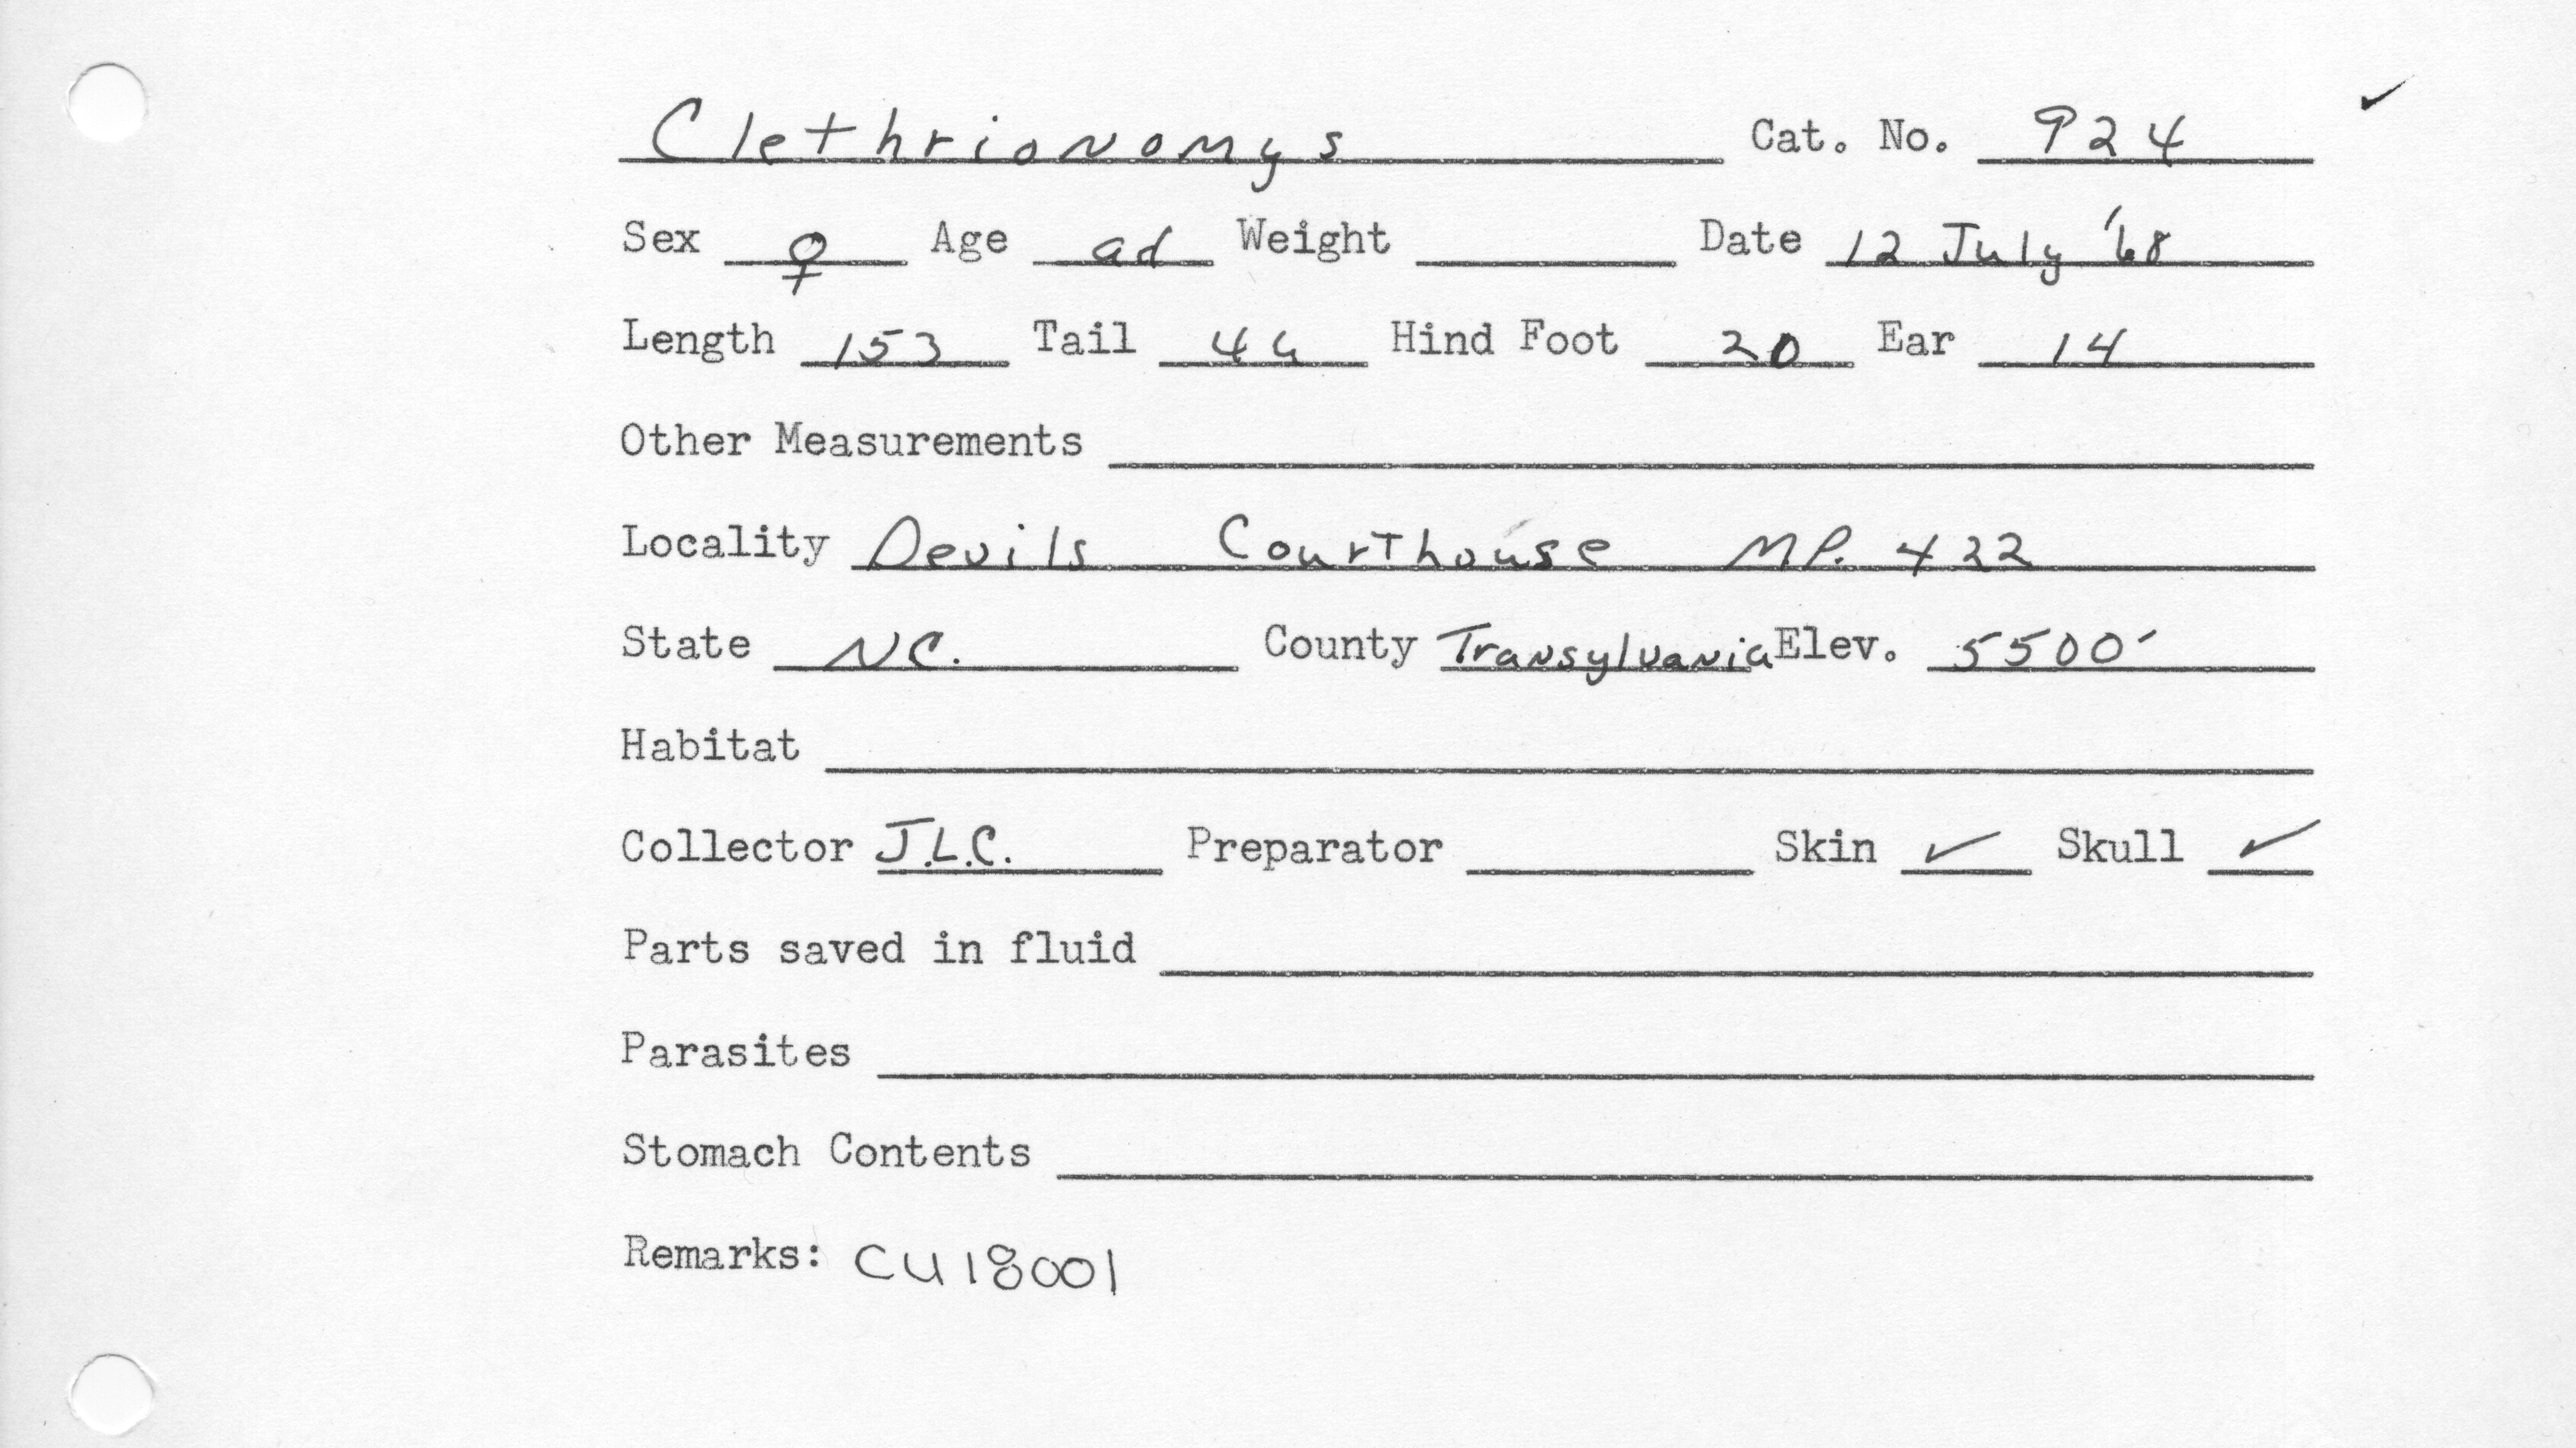 Clethrionomys Cat. No. 924 ✓
Sex ♀ Age ad Weight Date 12 July '68
Length 153 Tail 44 Hind Foot 20 Ear 14
Other Measurements
Locality Devils Courthouse MP. 422
State NC. County Transylvania Elev. 5500'
Habitat
Collector J.L.C. Preparator Skin ✓ Skull ✓
Parts saved in fluid
Parasites
Stomach Contents
Remarks: CU18001